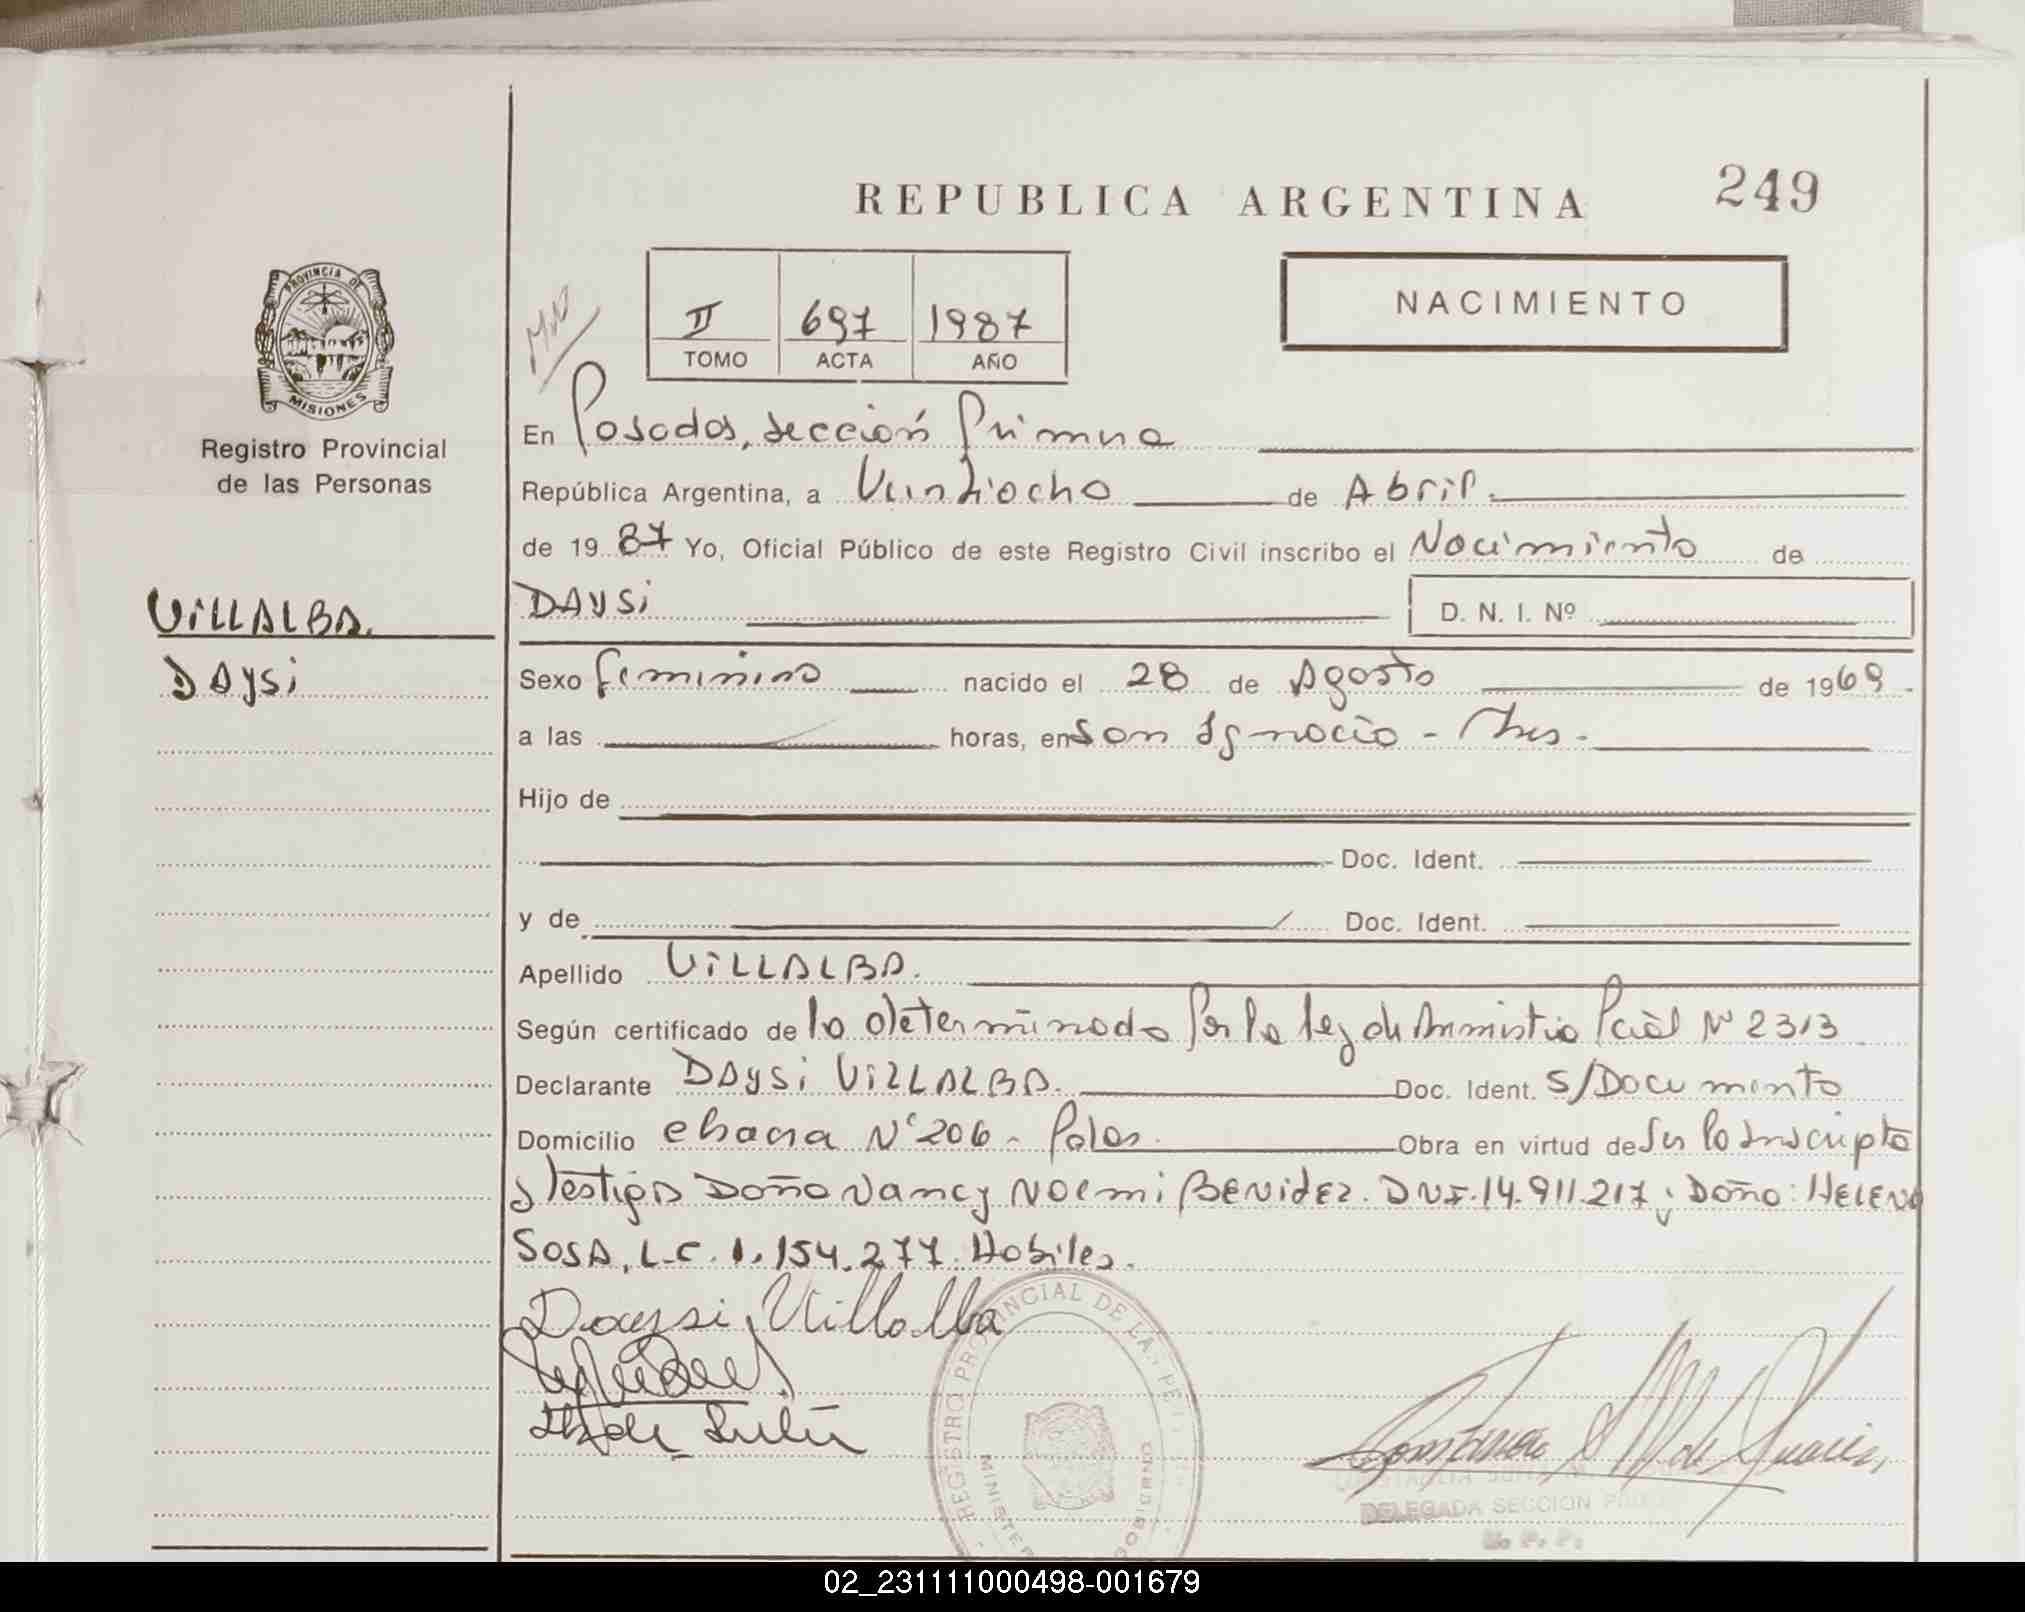 REPUBLICA ARGENTINA
249
II 697 1987
TOMO ACTA AÑO
NACIMIENTO
PROVINCIA DE
MISIONES
Registro Provincial
de las Personas
VILLALBA.
DAYSi
En Posadas, Sección Primera
República Argentina, a Veintiocho de Abril.
de 1987 Yo, Oficial Público de este Registro Civil inscribo el Nacimiento de
DAYSi D. N. I. Nº
Sexo femenino nacido el 28 de Agosto de 1969
a las horas, en San Ignacio - Mnes.
Hijo de
Doc. Ident.
y de Doc. Ident.
Apellido ViLLALBA.
Según certificado de lo determinado Por la ley de Amnistia Pcial Nº 2313
Declarante DAYSi ViLLALBA. Doc. Ident. S/Documento
Domicilio chacra Nº 206 - Pdas. Obra en virtud de Ser la Inscripta
y Testigos Doña Nancy NOEMi BENidEZ. DNI. 14.911.217 y Doña: HELENA
SOSA, L.C. 1.154.277. Habiles.
Daysi Villalba
REGISTRO PROVINCIAL DE LA
DELEGADA SECCION